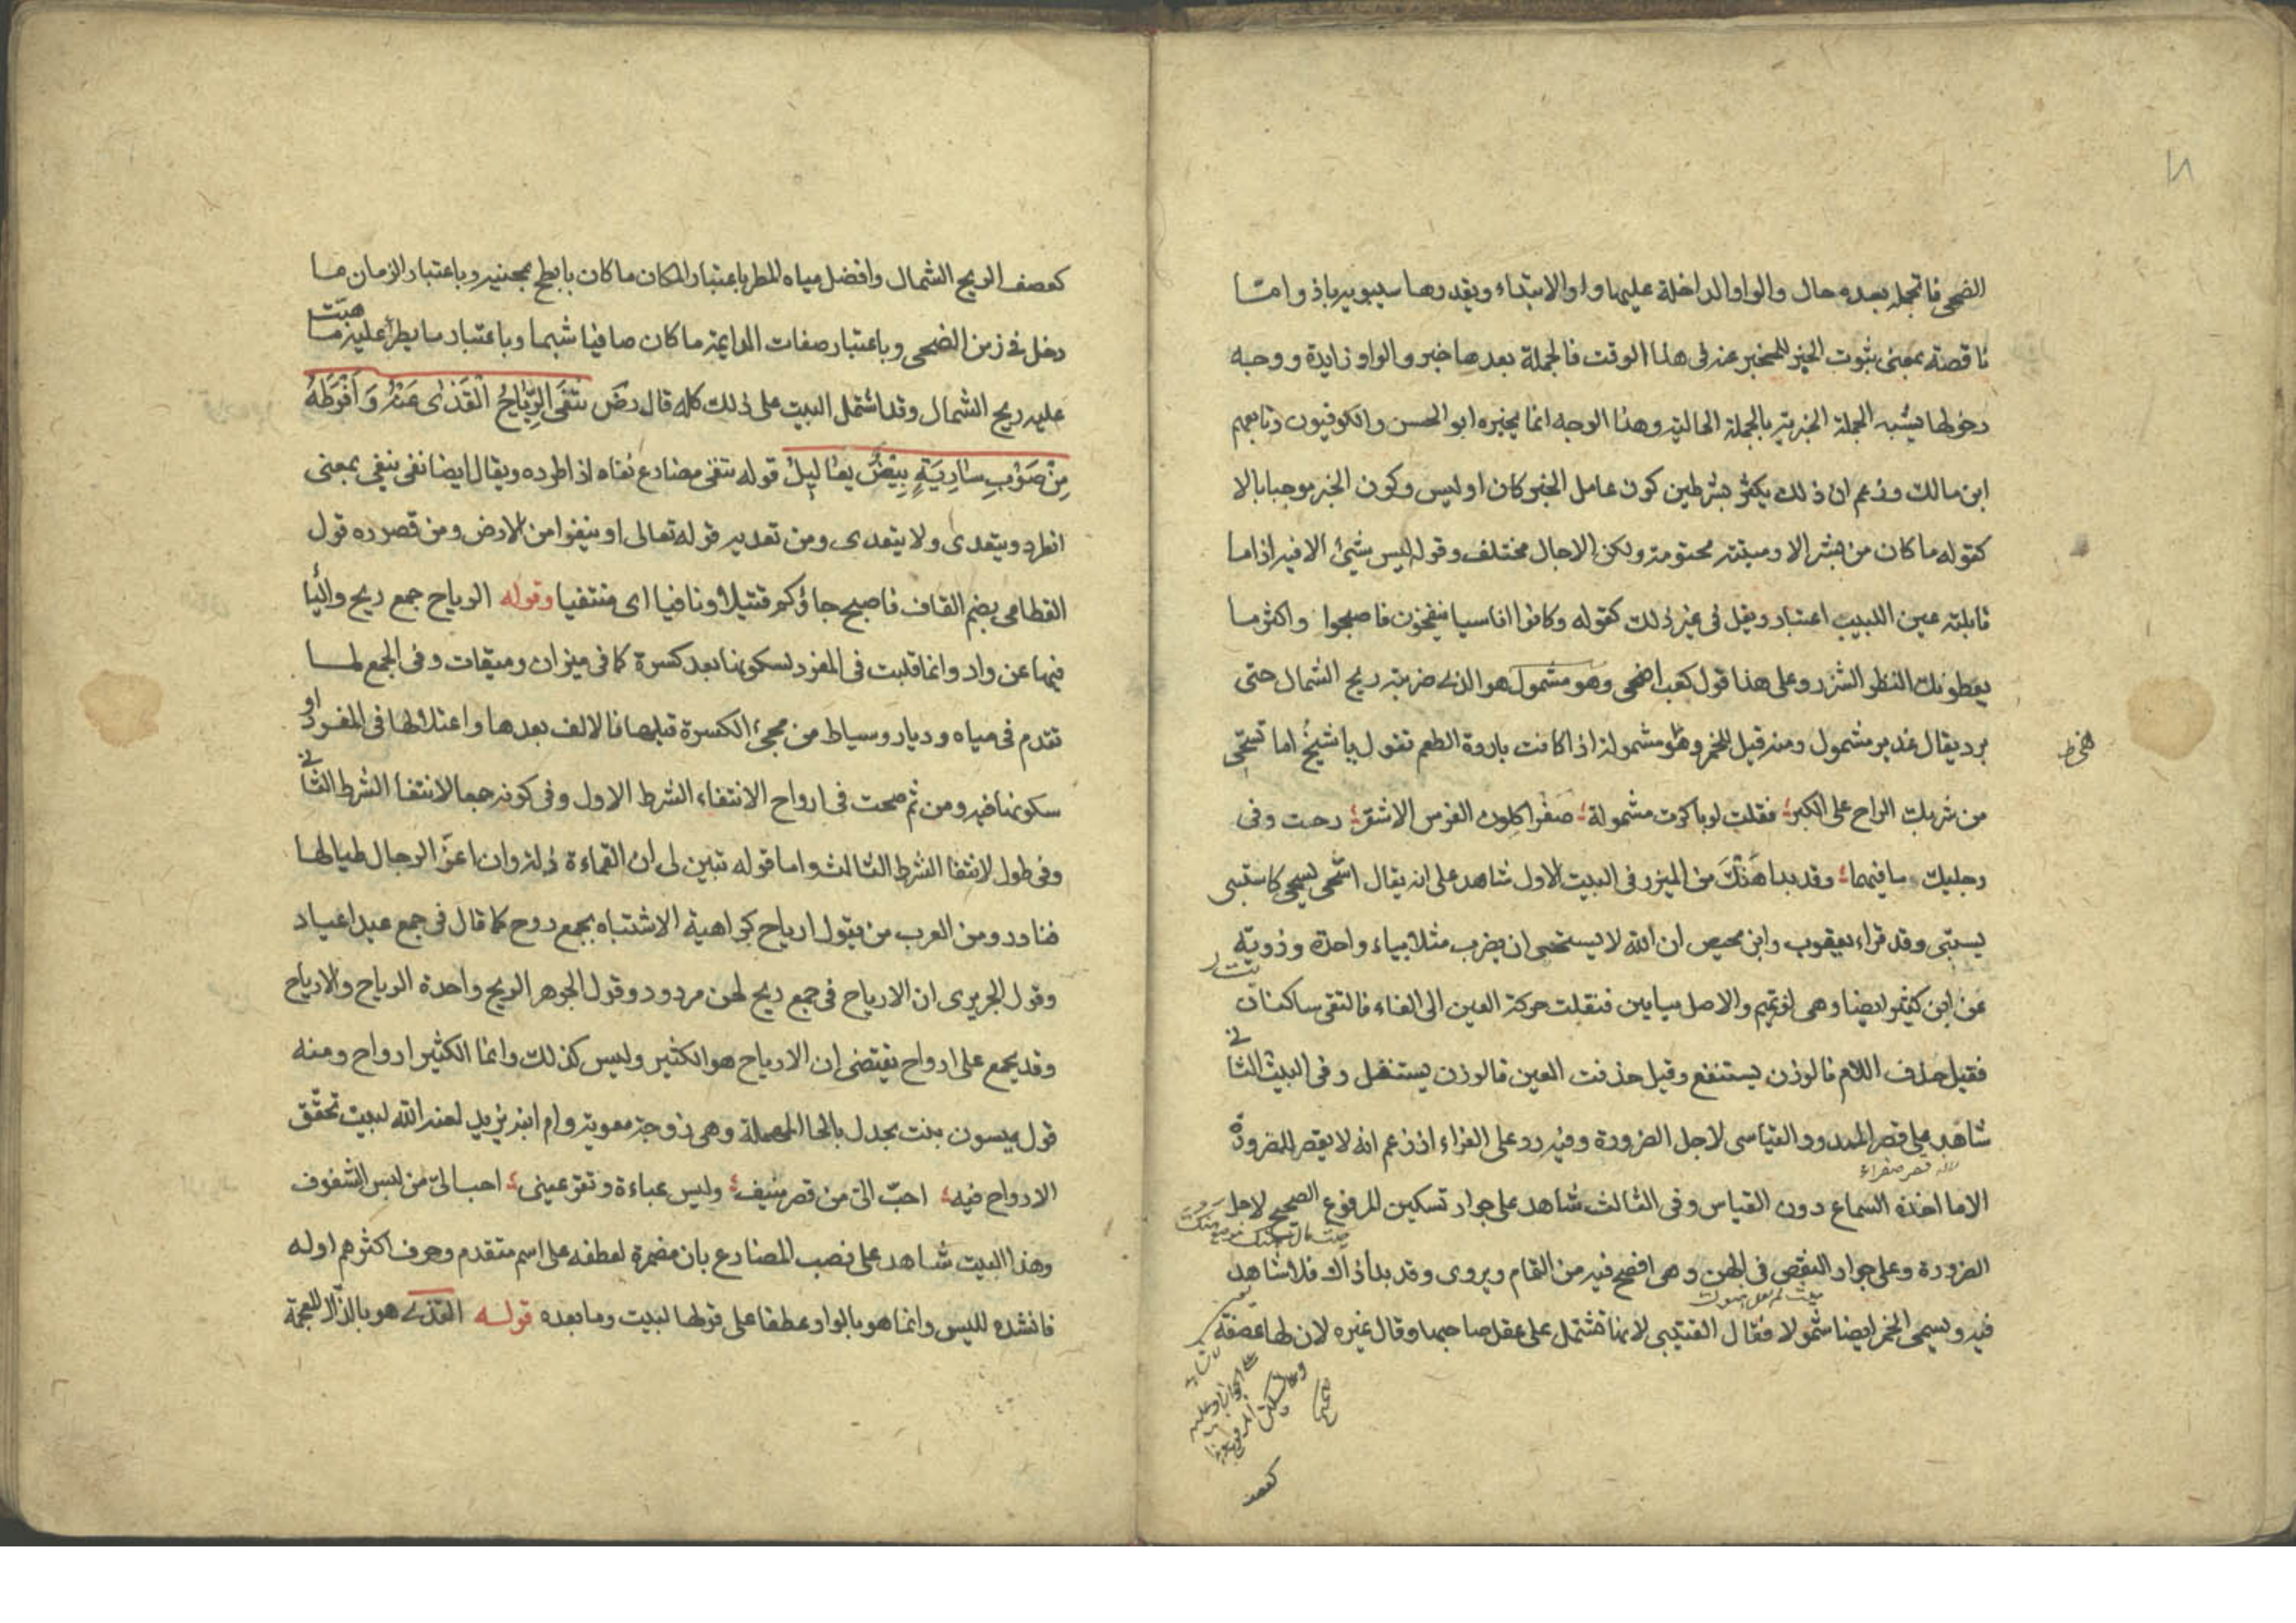 الضحى فالجملة بعده حال والواو الداخلة عليها واو الابتداء ويقدرها سيبويه باذ واما
ناقصة بمعنى ثبوت الخبر للمخبر عنه فى هذا الوقت فالجملة بعدها خبر والواو زايدة ووجه
دخولها تشبيه الجملة الخبرية بالجملة الحالية وهذا الوجه انما يجيزه ابو الحسن والكوفيون وتابعهم
ابن مالك وزعم ان ذلك يكثر بشرطين كون عامل الخبر كان او ليس وكون الخبر موجبا بالا
كقوله ما كان من بشر الا وميتته محتومة ولكن الاجال مختلف وقوله ليس شيئ الا فيه اذا ما
قابلته عين اللبيب اعتبار ويقل فى غير ذلك كقوله وكانوا اناسيا ينفحون فاصبحوا واكثر ما
يعطونك النظر الشزر وعلى هذا قول كعب اضحى وهو مشمول هو الذى ضربته ريح الشمال حتى
برد يقال غدير مشمول ومنه قيل للخمر مشمولة اذا كانت باردة الطعم تقول يا شيخ اما تستحى
من شربك الراح على الكبر فقلت لو باكرت مشمولة صفرا كلون الفرس الاشقر رحت وفى
رجليك ما فيهما وقد بدا هنك من الميزر فى البيت الاول شاهد على انه يقال استحى يستحى كاستبى
يستبى وقد قراء يعقوب وابن محيص ان الله لا يستحى ان يضرب مثلا بياء واحدة ورويت
عن ابن كثير ايضا وهى لغة تميم والاصل بيايين فنقلت حركة العين الى الفاء فالتقى ساكنان
فقيل حذف اللام فالوزن يستفع وقيل حذفت العين فالوزن يستفل وفى البيت الثانى
شاهد على قصر الممدود القياسى لاجل الضرورة وفيه رد على الفراء اذ زعم انه لا يقصر للضرورة
لانه قصر صفراء
الا ما اخذه السماع دون القياس وفى الثالث شاهد على جواز تسكين المرفوع الصحيح لاجل
الضرورة وعلى جواز النقص فى الهن وهى افصح فيه من التمام ويروى وقد بدا ذاك فلا شاهد
فيه ويسمى الخمر ايضا شمولا فقال القتيبى لانها تشتمل على عقل صاحبها وقال غيره لان لها عصفة
كعصف
كعصف الريح الشمال وافضل مياه المطر باعتبار المكان ما كان بابطح بمحنية وباعتبار الزمان ما
دخل فى زمن الضحى وباعتبار صفات المايية ما كان صافيا شبما وباعتبار ما يطرأ عليه ما هبت
عليه ريح الشمال وقد اشتمل البيت على ذلك كله قال رض تنفى الرياح القذى عنه وافرطه
من صوب سارية بيض يعاليل قوله تنفى مضارع نفاه اذا طرده ويقال ايضا نفى ينفى بمعنى
انطرد ويتعدى ولا يتعدى ومن تعديه قوله تعالى او ينفوا من الارض ومن قصوره قول
القطامى بضم القاف فاصبح جاؤكم قتيلا ونافيا اى منتفيا وقوله الرياح جمع ريح واليا
فيها عن واو وانما قلبت فى المفرد لسكونها بعد كسرة كما فى ميزان وميقات وفى الجمع لما
تقدم فى مياه وديار وسياط من مجئ الكسرة قبلها فالالف بعدها واعتلالها فى المفرد او
سكونها فيه ومن ثم صحت فى ارواح لانتفاء الشرط الاول وفى كوزة جمعا لانتفا الشرط الثانى
وفى طول لانتفا الشرط الثالث واما قوله تبين لى ان القماءة ذلة وان اعز الرجال طيالها
فنادر ومن العرب من يقول ارياح كراهية الاشتباه بجمع روح كما قال فى جمع عيد اعياد
وقول الحريرى ان الارياح فى جمع ريح لحن مردود وقول الجوهر الريح واحدة الرياح والارياح
وقد يجمع على ارواح يقتضى ان الارياح هو الكثير وليس كذلك وانما الكثير ارواح ومنه
قول ميسون بنت بحدل بالحا المهملة وهى زوجة معوية وام ابنه يزيد لعنه الله لبيت تخفق
الارواح فيه احب الى من قصر منيف ولبس عباءة وتقر عينى احب الى من لبس الشفوف
وهذا البيت شاهد على نصب المضارع بان مضمرة لعطفه على اسم متقدم وحرف اكثرهم اوله
فانشده للبس وانما هو بالواو عطفا على قولها لبيت وما بعده قوله القذى هو بالذال المعجمة